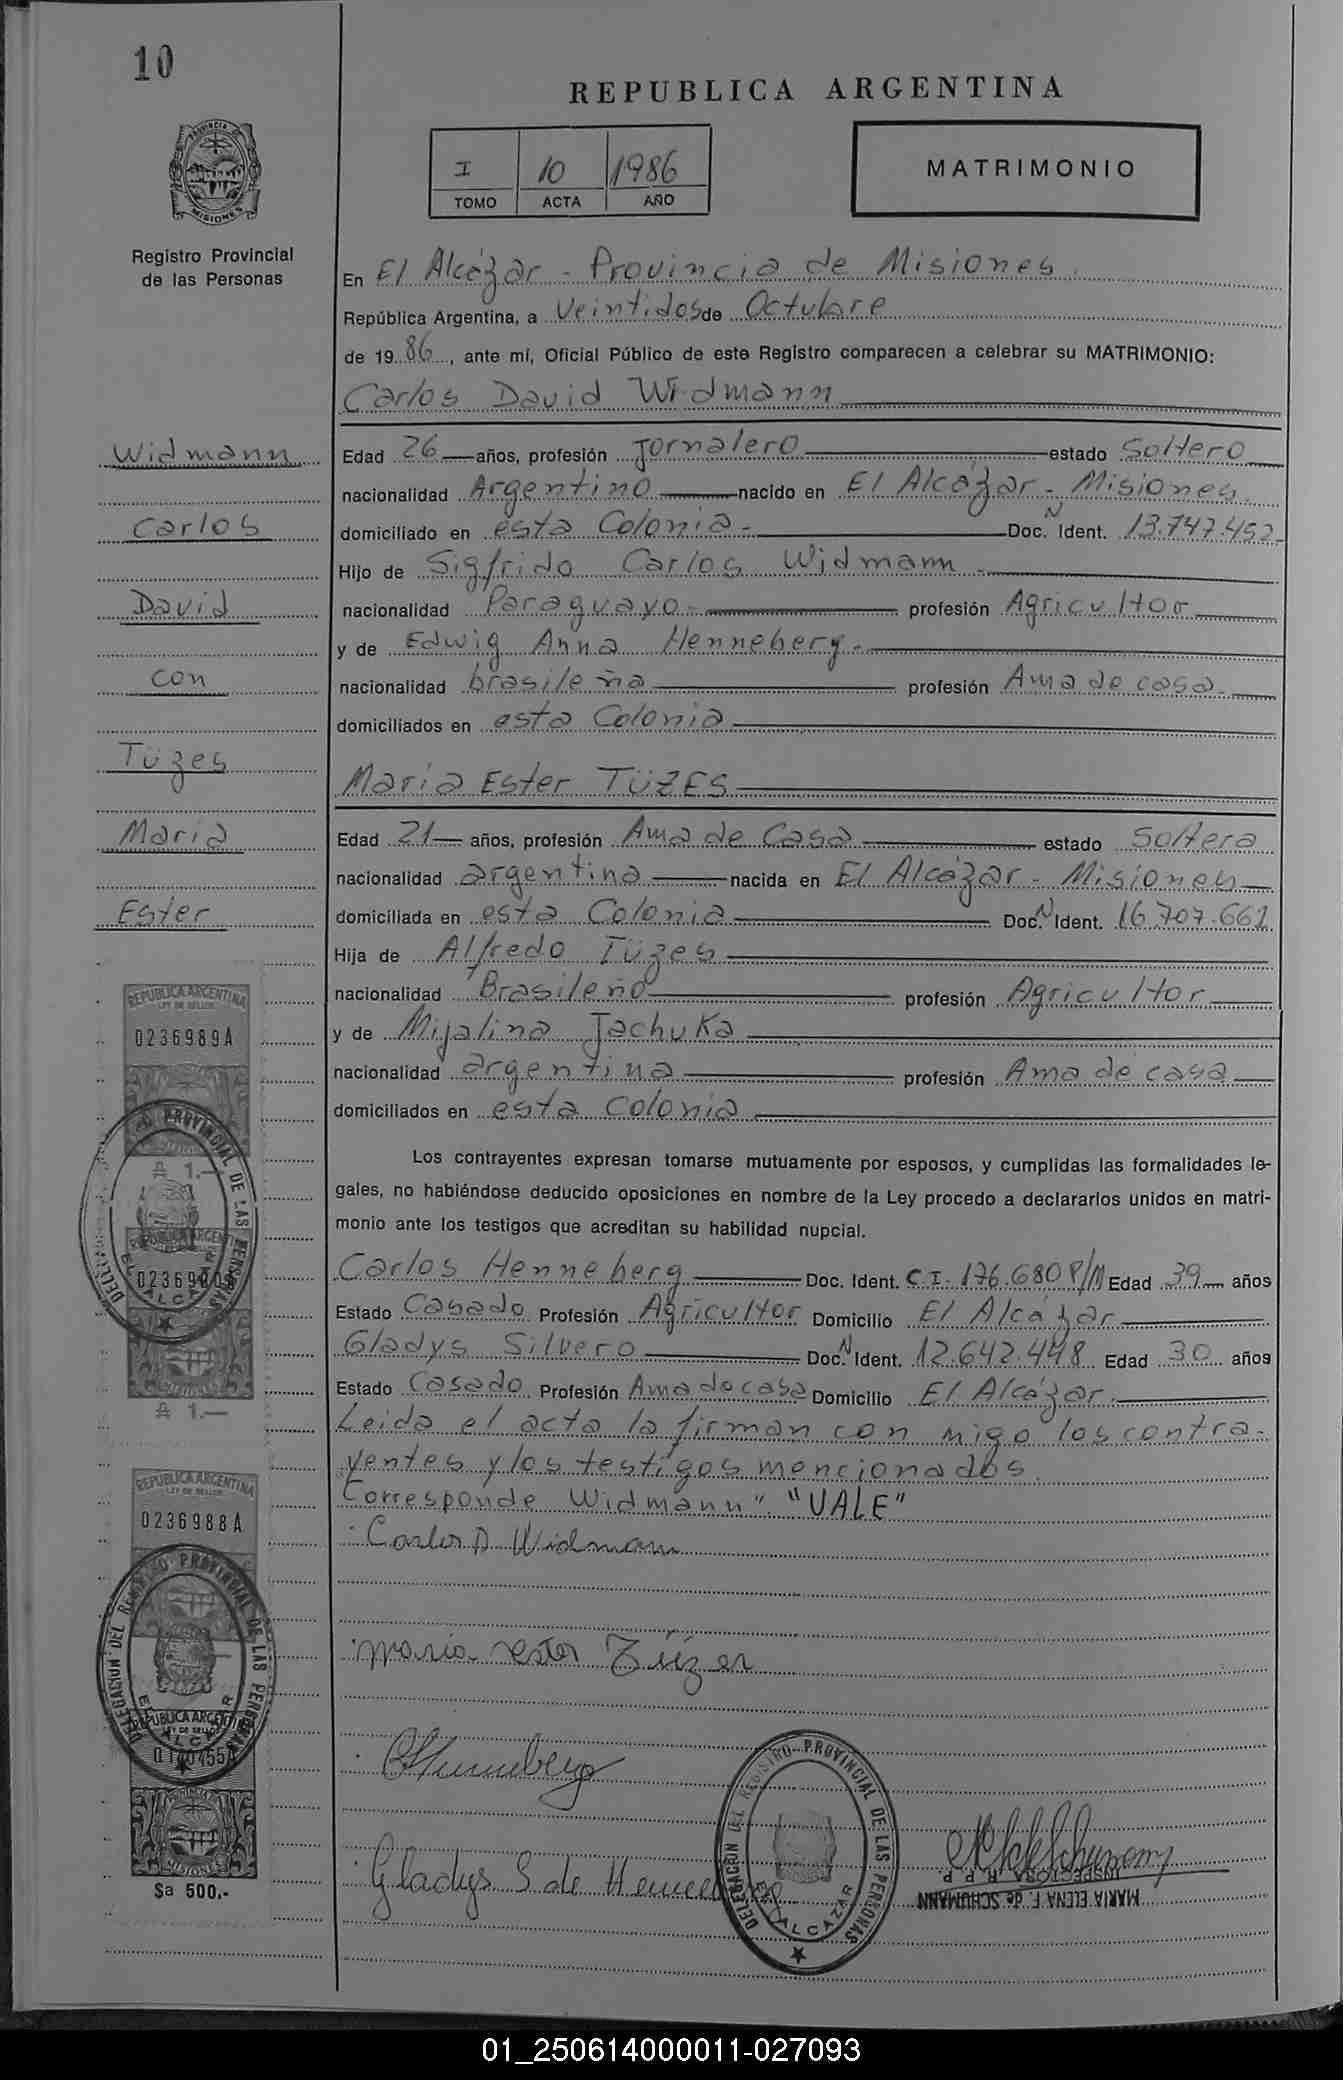 10
REPUBLICA ARGENTINA
I 10 1986
TOMO ACTA AÑO
MATRIMONIO
PROVINCIA DE MISIONES
Registro Provincial
de las Personas
En El Alcázar - Provincia de Misiones.
República Argentina, a Veintidos de Octubre
de 19 86, ante mí, Oficial Público de este Registro comparecen a celebrar su MATRIMONIO:
Carlos David Widmann
Widmann
Carlos
David
con
Tüzes
Maria
Ester
Edad 26 años, profesión Jornalero estado Soltero
nacionalidad Argentino nacido en El Alcázar - Misiones.
domiciliado en esta Colonia.- Doc. N Ident. 13.747.452.
Hijo de Sigfrido Carlos Widmann.-
nacionalidad Paraguayo.- profesión Agricultor
y de Edwig Anna Henneberg.-
nacionalidad brasileña profesión Ama de casa.
domiciliados en esta Colonia
Maria Ester TÜZES
Edad 21 años, profesión Ama de Casa estado Soltera
nacionalidad argentina nacida en El Alcázar - Misiones
domiciliada en esta Colonia Doc. N Ident. 16.707.661
Hija de Alfredo Tüzes
nacionalidad Brasileño profesión Agricultor
y de Mijalina Jachuka
nacionalidad argentina profesión Ama de casa
domiciliados en esta Colonia
Los contrayentes expresan tomarse mutuamente por esposos, y cumplidas las formalidades le-
gales, no habiéndose deducido oposiciones en nombre de la Ley procedo a declararlos unidos en matri-
monio ante los testigos que acreditan su habilidad nupcial.
Carlos Henneberg Doc. Ident. C.I. 176.680 P/M Edad 39 años
Estado Casado Profesión Agricultor Domicilio El Alcázar
Gladys Silvero Doc. N Ident. 12.642.448 Edad 30 años
Estado Casado Profesión Ama de casa Domicilio El Alcázar.
Leida el acta la firman con migo los contra-
yentes y los testigos mencionados.
Corresponde Widmann" "VALE"
Carlos D Widmann
Maria Ester Tüzes
CHenneberg
Gladys S de Henneberg
REPUBLICA ARGENTINA
LEY DE SELLOS
0236989A
₳ 1.—
REPUBLICA ARGENTINA
LEY DE SELLOS
₳ 1.—
REPUBLICA ARGENTINA
LEY DE SELLOS
0236988A
REPUBLICA ARGENTINA
LEY DE SELLOS
PROVINCIA
MISIONES
$a 500.-
DELEGACION DEL REGISTRO PROVINCIAL DE LAS PERSONAS
EL ALCAZAR
DELEGACION DEL REGISTRO PROVINCIAL DE LAS PERSONAS
EL ALCAZAR
DELEGACION DEL REGISTRO PROVINCIAL DE LAS PERSONAS
EL ALCAZAR
MARIA ELENA F. de SCHUMANN
INSPECTORA R. P. P.
01_250614000011-027093